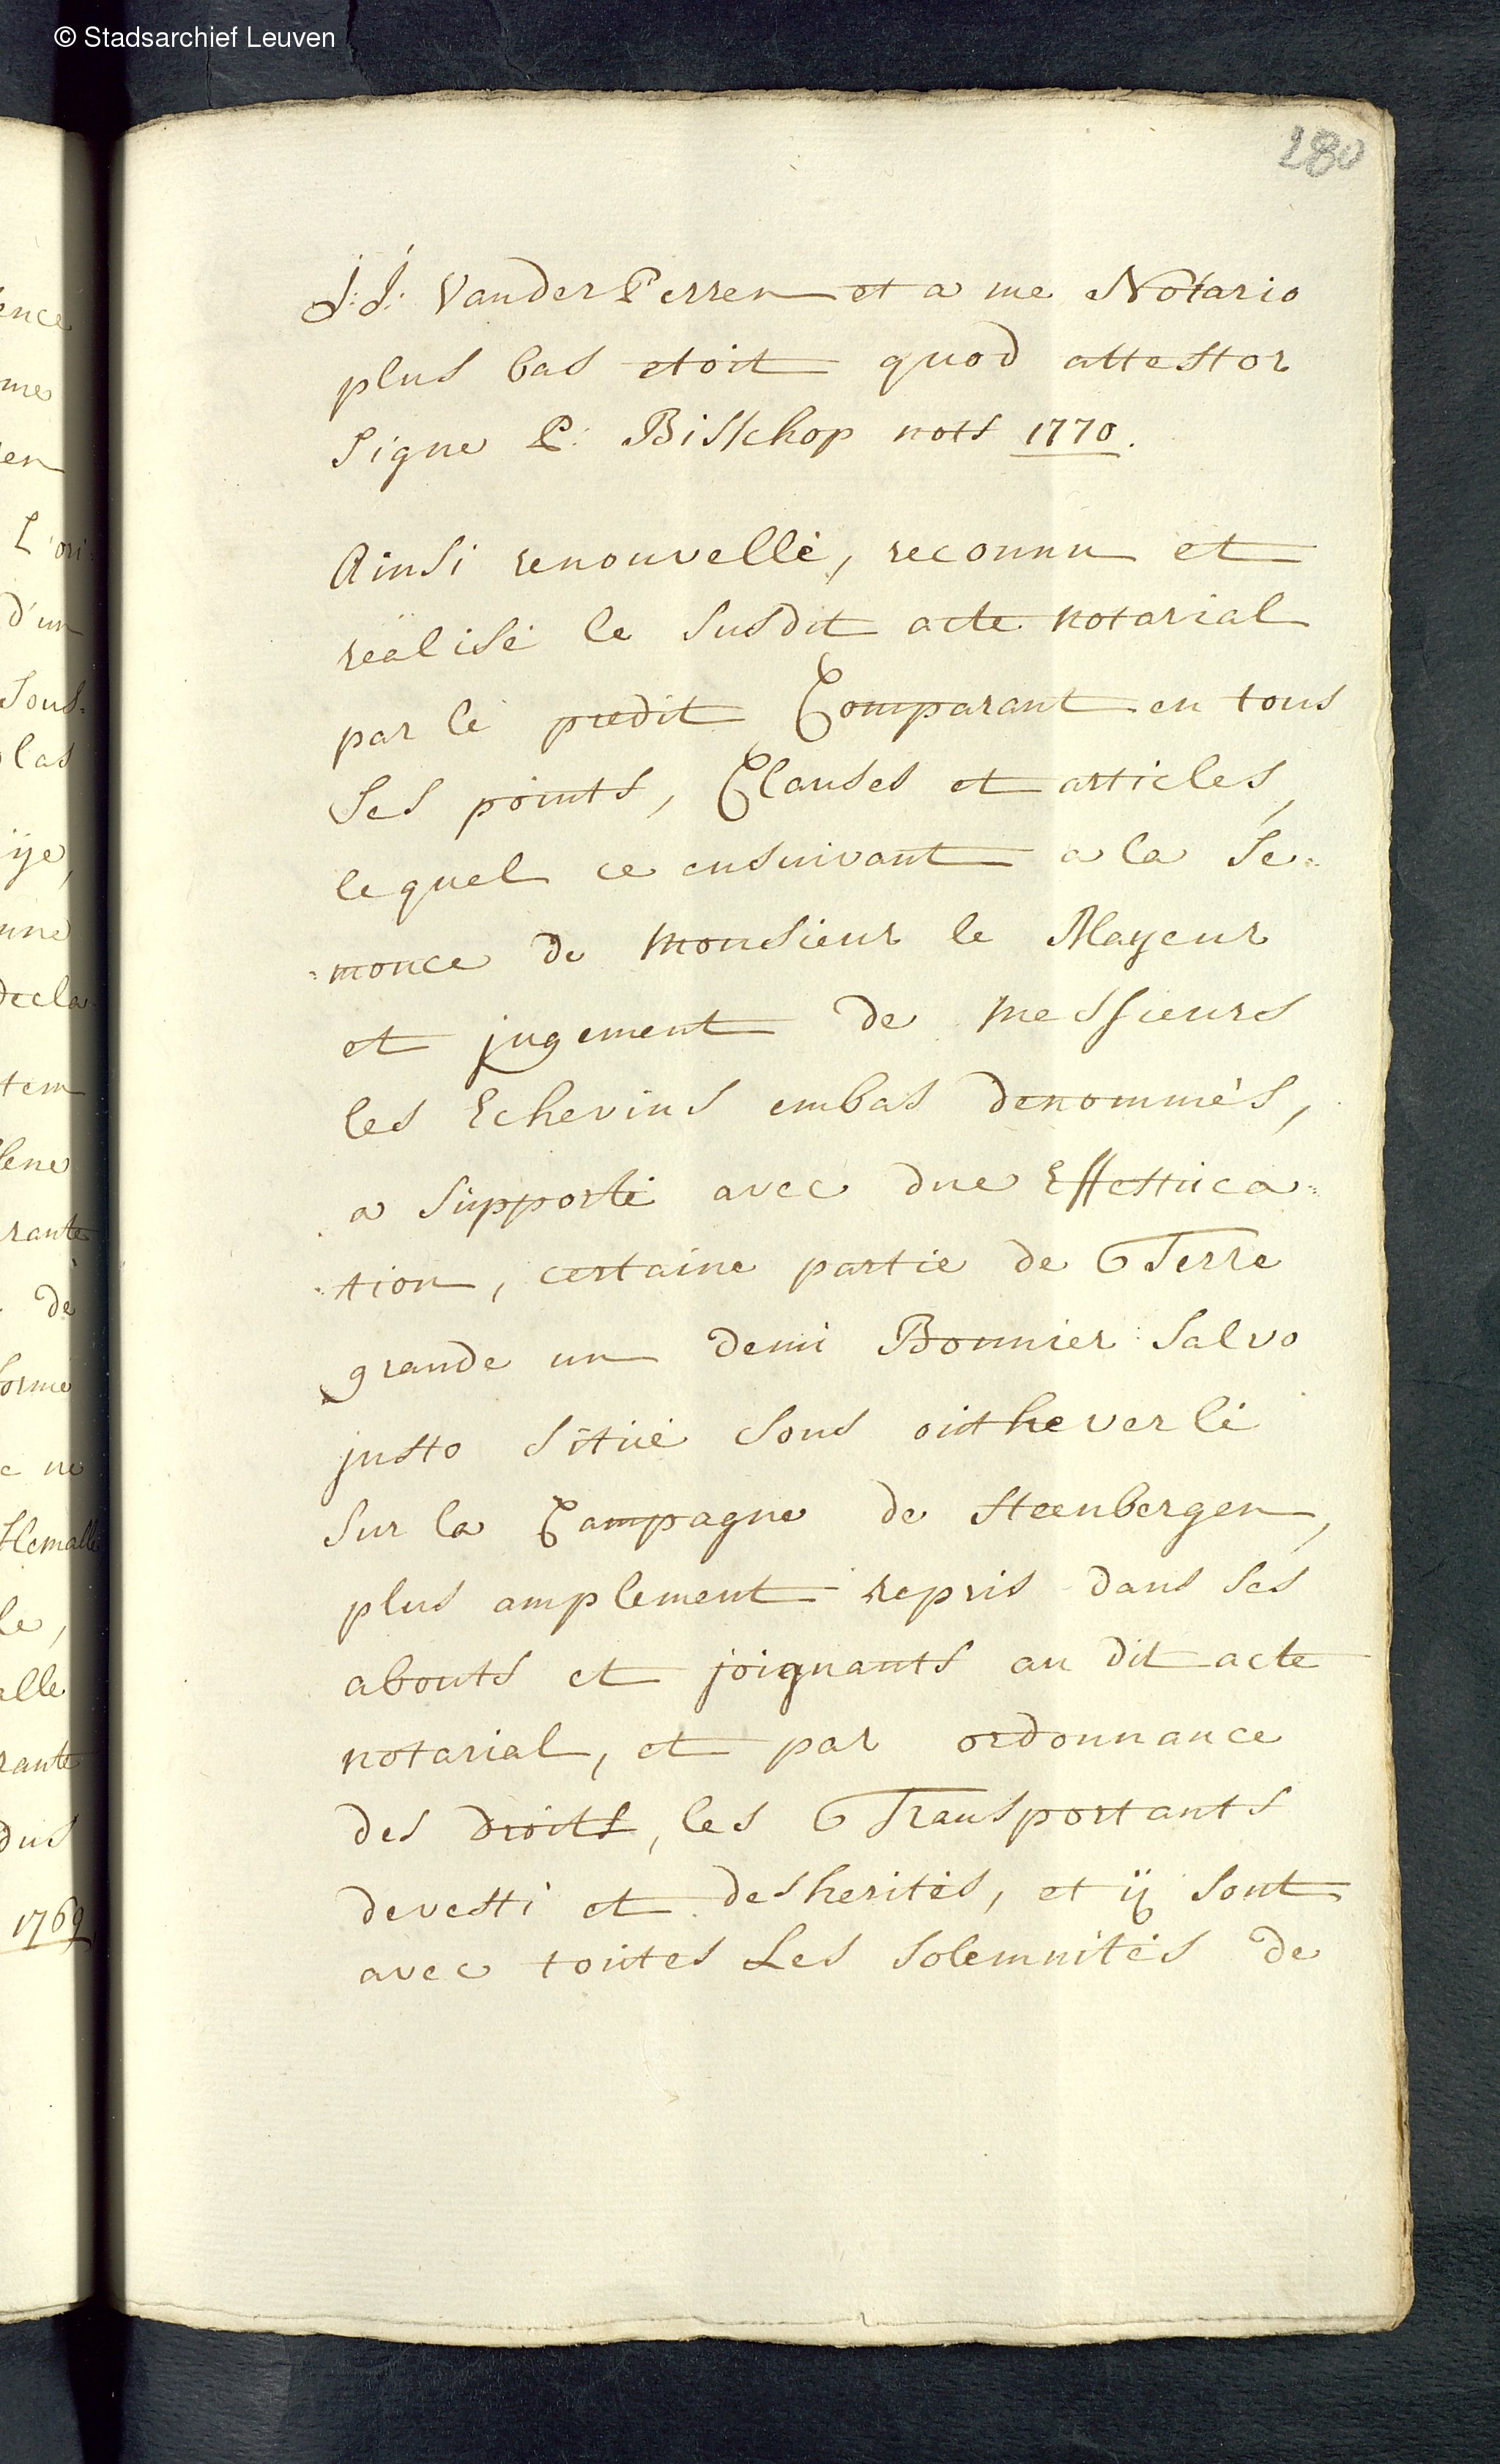 © Stadsarchief Leuven
280
J: J: Vander Perren et a me Notario
plus bas etoit quod attestor
Signe P: Bisschop nots 1770.
Ainsi renouvellé, reconnu et
reälisé le susdit acte notarial
par le predit Comparant en tous
ses points, Clauses et articles,
lequel ce ensuivant a la Se=
=monce de Monsieur le Mayeur
et jugement de messieurs
les Echevins embas denommés,
a supporté avec due Effestuca=
=tion, certaine partie de Terre
grande un demi Bonnier salvo
justo situé sous oirtheverlé
sur la Campagne de Steenbergen,
plus amplement repris dans ses
abouts et joignants au dit acte
notarial, et par ordonnance
des droits, les Transportants
devesti et desherités, et ÿ sont
avec toutes Les Solemnités de
ence
mes
en
L'ori=
d'un
sous=
las
ije,
une
decla
tem
rante
de
forme
c ne
Hemalle
le,
alle
rante
dus
1769